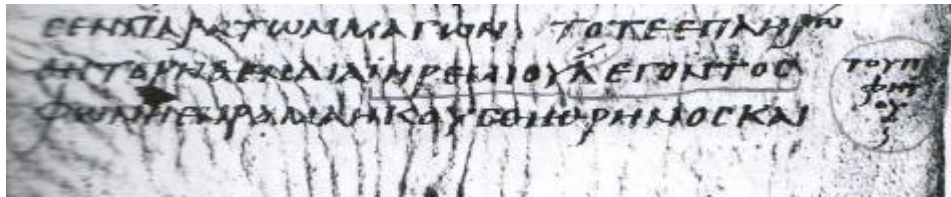 ϹΕΝΠΑΡΑΤΩΝΜΑΓΩΝ ΤΟΤΕΕΠΛΗΡΩ
ΘΗΤΟΡΗΘΕΝΔΙΑΙΗΡΕΜΙΟΥΛΕΓΟΝΤΟϹ
ΦΩΝΗΕΝΡΑΜΑΗΚΟΥϹΘΗΘΡΗΝΟϹΚΑΙ